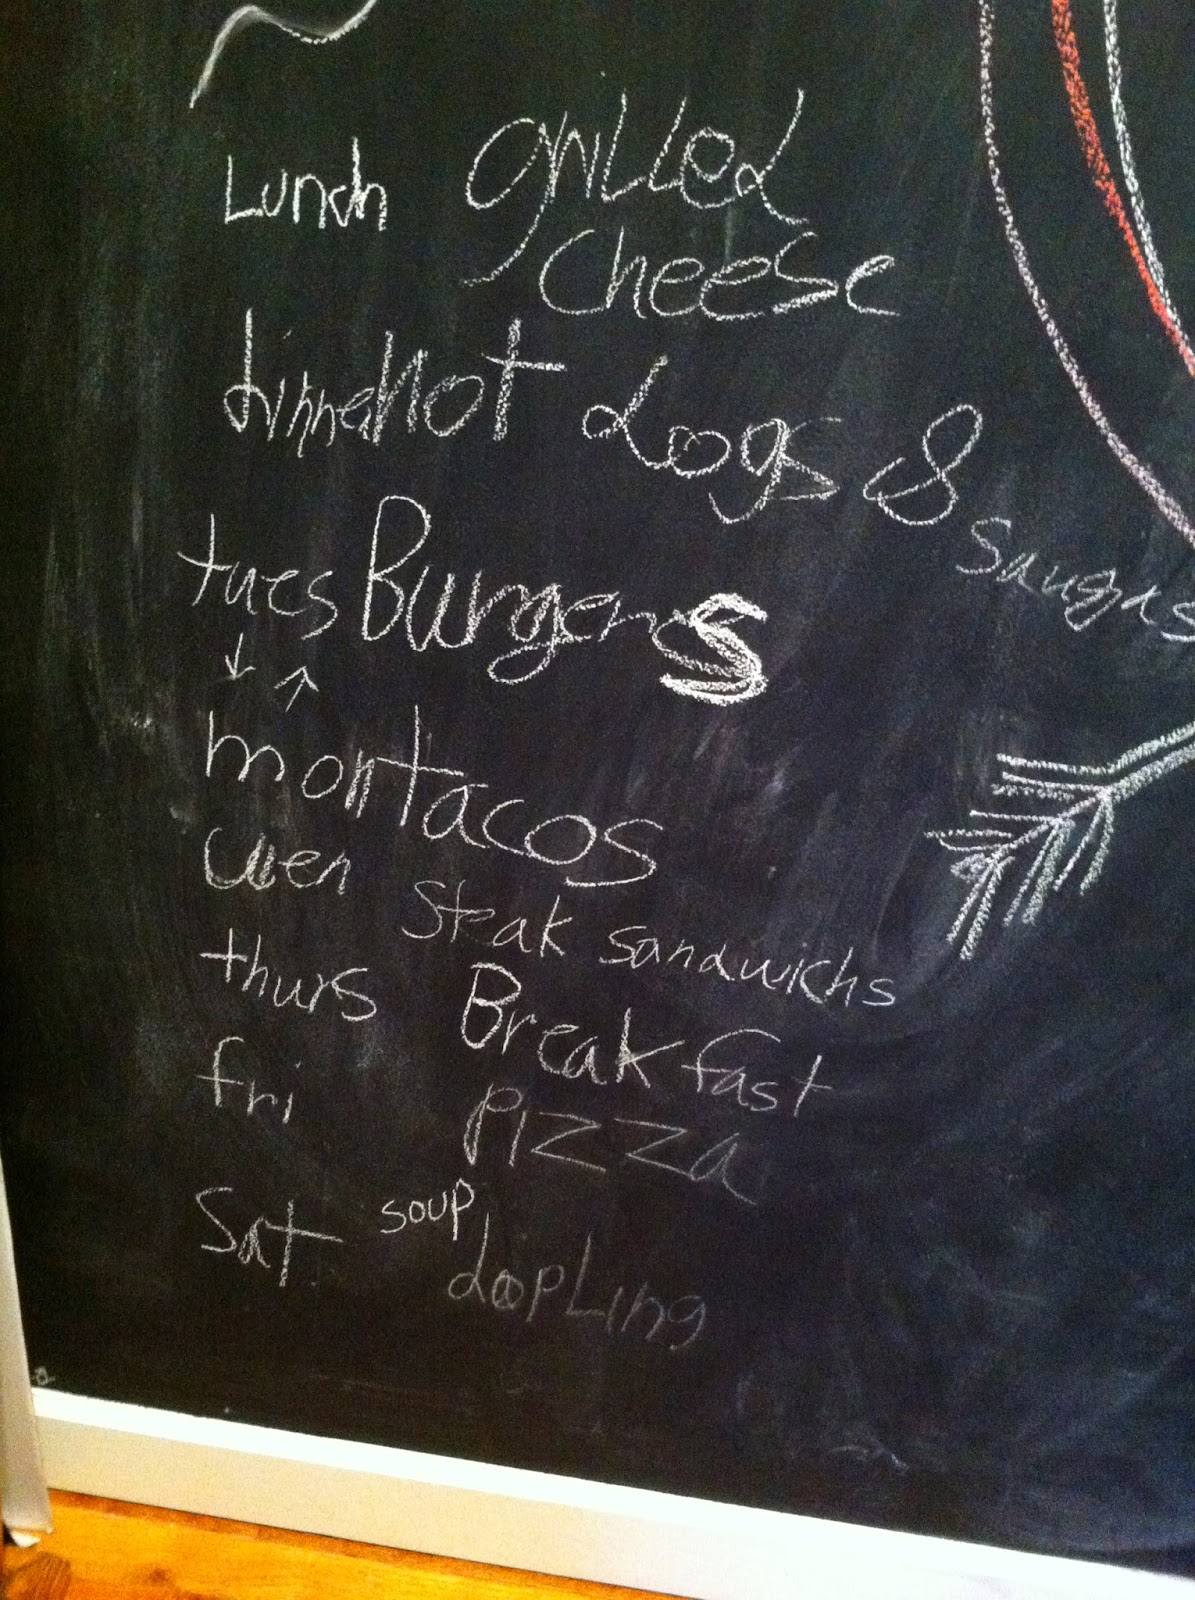 Lunch grilled
cheese
dinner Hot dogs &
Saugas
tues Burgers
mon tacos
wen Steak Sandwichs
thurs Breakfast
fri Pizza
Sat soup
dopling